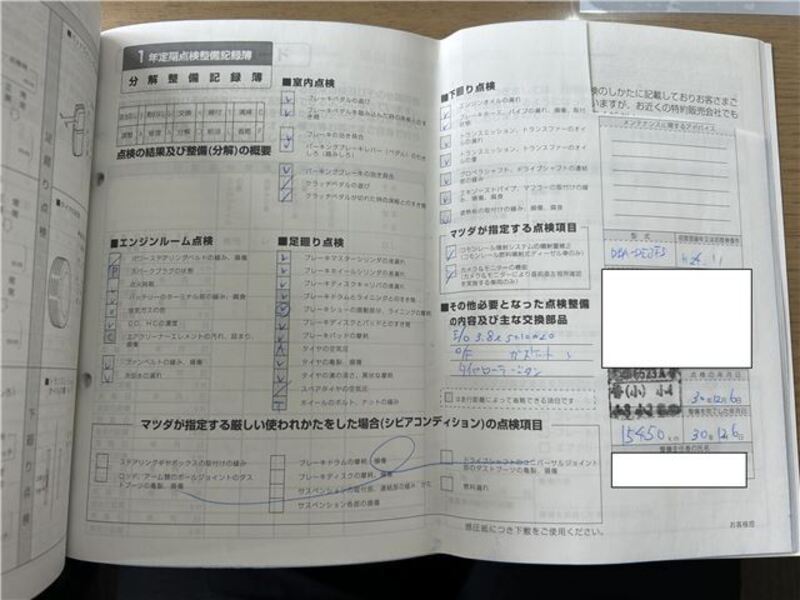 1年定期点検整備記録簿
分解整備記録簿
点検の結果及び整備(分解)の概要
■エンジンルーム点検
パワーステアリングベルトの緩み、損傷
スパークプラグの状態
点火時期
バッテリーのターミナル部の緩み、腐食
排気ガスの色
CO、HCの濃度
エアクリーナーエレメントの汚れ、詰まり、
損傷
ファンベルトの緩み、損傷
冷却水の漏れ
■室内点検
ブレーキペダルの遊び
ブレーキペダルを踏み込んだ時の床板とのす
き間
ブレーキの効き具合
パーキングブレーキレバー(ペダル)の引き
しろ(踏みしろ)
パーキングブレーキの効き具合
クラッチペダルの遊び
クラッチペダルが切れた時の床板とのすき間
■足廻り点検
ブレーキマスターシリンダの液漏れ
ブレーキホイールシリンダの液漏れ
ブレーキディスクキャリパの液漏れ
ブレーキドラムとライニングとのすき間
ブレーキシューの摺動部分、ライニングの摩耗
ブレーキディスクとパッドとのすき間
ブレーキパッドの摩耗
タイヤの空気圧
タイヤの亀裂、損傷
タイヤの溝の深さ、異状な摩耗
スペアタイヤの空気圧
ホイールのボルト、ナットの緩み
■下廻り点検
エンジンオイルの漏れ
ブレーキホース、パイプの漏れ、損傷、取付
状態
トランスミッション、トランスファーのオイ
ルの漏れ
トランスミッション、トランスファーのオイ
ルの量
プロペラシャフト、ドライブシャフトの連結
部の緩み
エキゾーストパイプ、マフラーの取付けの緩
み、損傷、腐食
遮熱板の取付けの緩み、損傷、腐食
マツダが指定する点検項目
コモンレール噴射システムの噴射量補正
(コモンレール燃料噴射式ディーゼル車のみ)
カメラ&モニターの機能
(カメラ&モニターにより直前直左視界確認
を実施する車両のみ)
■その他必要となった点検整備
の内容及び主な交換部品
E/O 3.8ℓ
O/F ガスケット
タイヤローテーション
は走行距離によって省略できる項目です
マツダが指定する厳しい使われかたをした場合(シビアコンディション)の点検項目
ステアリングギヤボックスの取付けの緩み
ロッド、アーム類のボールジョイントのダス
トブーツの亀裂、損傷
ブレーキドラムの摩耗、損傷
ブレーキディスクの摩耗、損傷
サスペンションの取付部、連結部の緩み、がた
サスペンション各部の損傷
ドライブシャフトのユニバーサルジョイント
部のダストブーツの亀裂、損傷
燃料漏れ
感圧紙につき下敷をご使用ください。
検のしかたに記載しておりお客さまご
いますが、お近くの特約販売会社でも
メンテナンスに関するアドバイス
型式
DBA-DE3FS
H26.11
点検の年月日
30年12月6日
整備を完了した年月日
15450 km
30年12月6日
整備主任者の氏名
お客様控